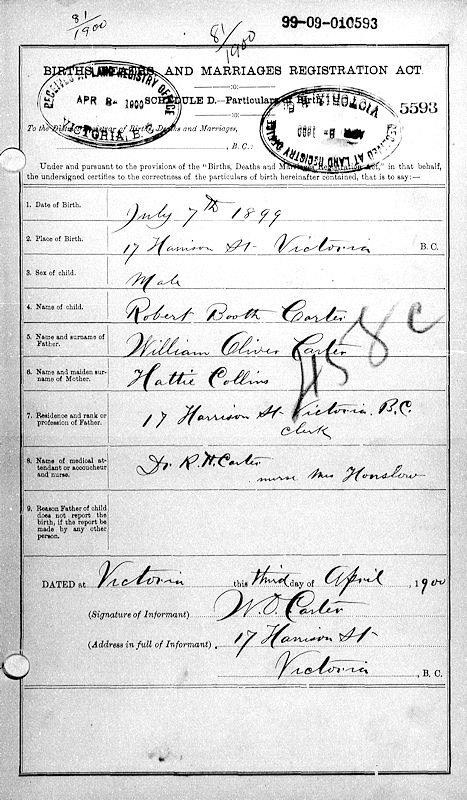 81/1900
81/1900
99-09-010593
BIRTHS, DEATHS, AND MARRIAGES REGISTRATION ACT.
RECEIVED AT LAND REGISTRY OFFICE
APR 3- 1900
VICTORIA B.C.
SCHEDULE D.—Particulars of Birth.
RECEIVED AT LAND REGISTRY OFFICE
APR 3- 1900
VICTORIA B.C.
5593
To the District Registrar of Births, Deaths and Marriages,
, B. C.:
Under and pursuant to the provisions of the "Births, Deaths and Marriages Registration Act," in that behalf,
the undersigned certifies to the correctness of the particulars of birth hereinafter contained, that is to say:—
1. Date of Birth. July 7th 1899
2. Place of Birth. 17 Harrison St Victoria B. C.
3. Sex of child. Male
4. Name of child. Robert Booth Carter
5. Name and surname of Father. William Oliver Carter
6. Name and maiden surname of Mother. Hattie Collins
458c
7. Residence and rank or profession of Father. 17 Harrison St Victoria. B.C.
Clerk
8. Name of medical attendant or accoucheur and nurse. Dr. R.H. Carter
nurse Mrs Honslow
9. Reason Father of child does not report the birth, if the report be made by any other person.
DATED at Victoria this third day of April, 1900
(Signature of Informant) W.O. Carter
(Address in full of Informant) 17 Harrison St
Victoria, B. C.